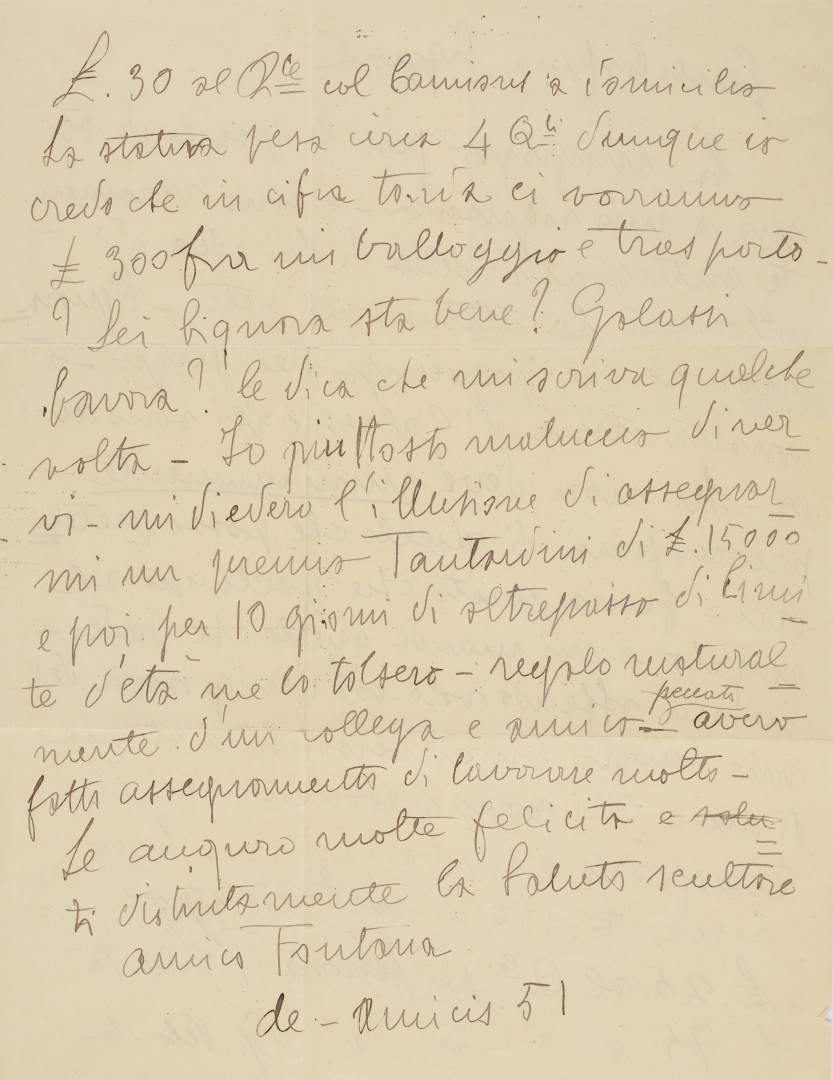 £. 30 al Q.le col Camions a domicilio
La statua pesa circa 4 Q.li dunque io
credo che in cifra tonda ci vorranno
£ 300 fra imballaggio e trasporto -
? Lei Signora sta bene? Galassi
lavora? le dica che mi scriva qualche
volta - Io piuttosto maluccio di ner-
vi - mi diedero l'illusione di assegnar-
mi un premio Tantardini di £. 15.000
e poi per 10 giorni di oltrepasso di limi-
te d'età me lo tolsero - regalo natural-
mente d'un collega e amico - peccato avevo
fatto assegnamento di lavorare molto -
Le auguro molte felicità e salu=
ti distintamente la Saluto scultore
amico Fontana
de - Amicis 51